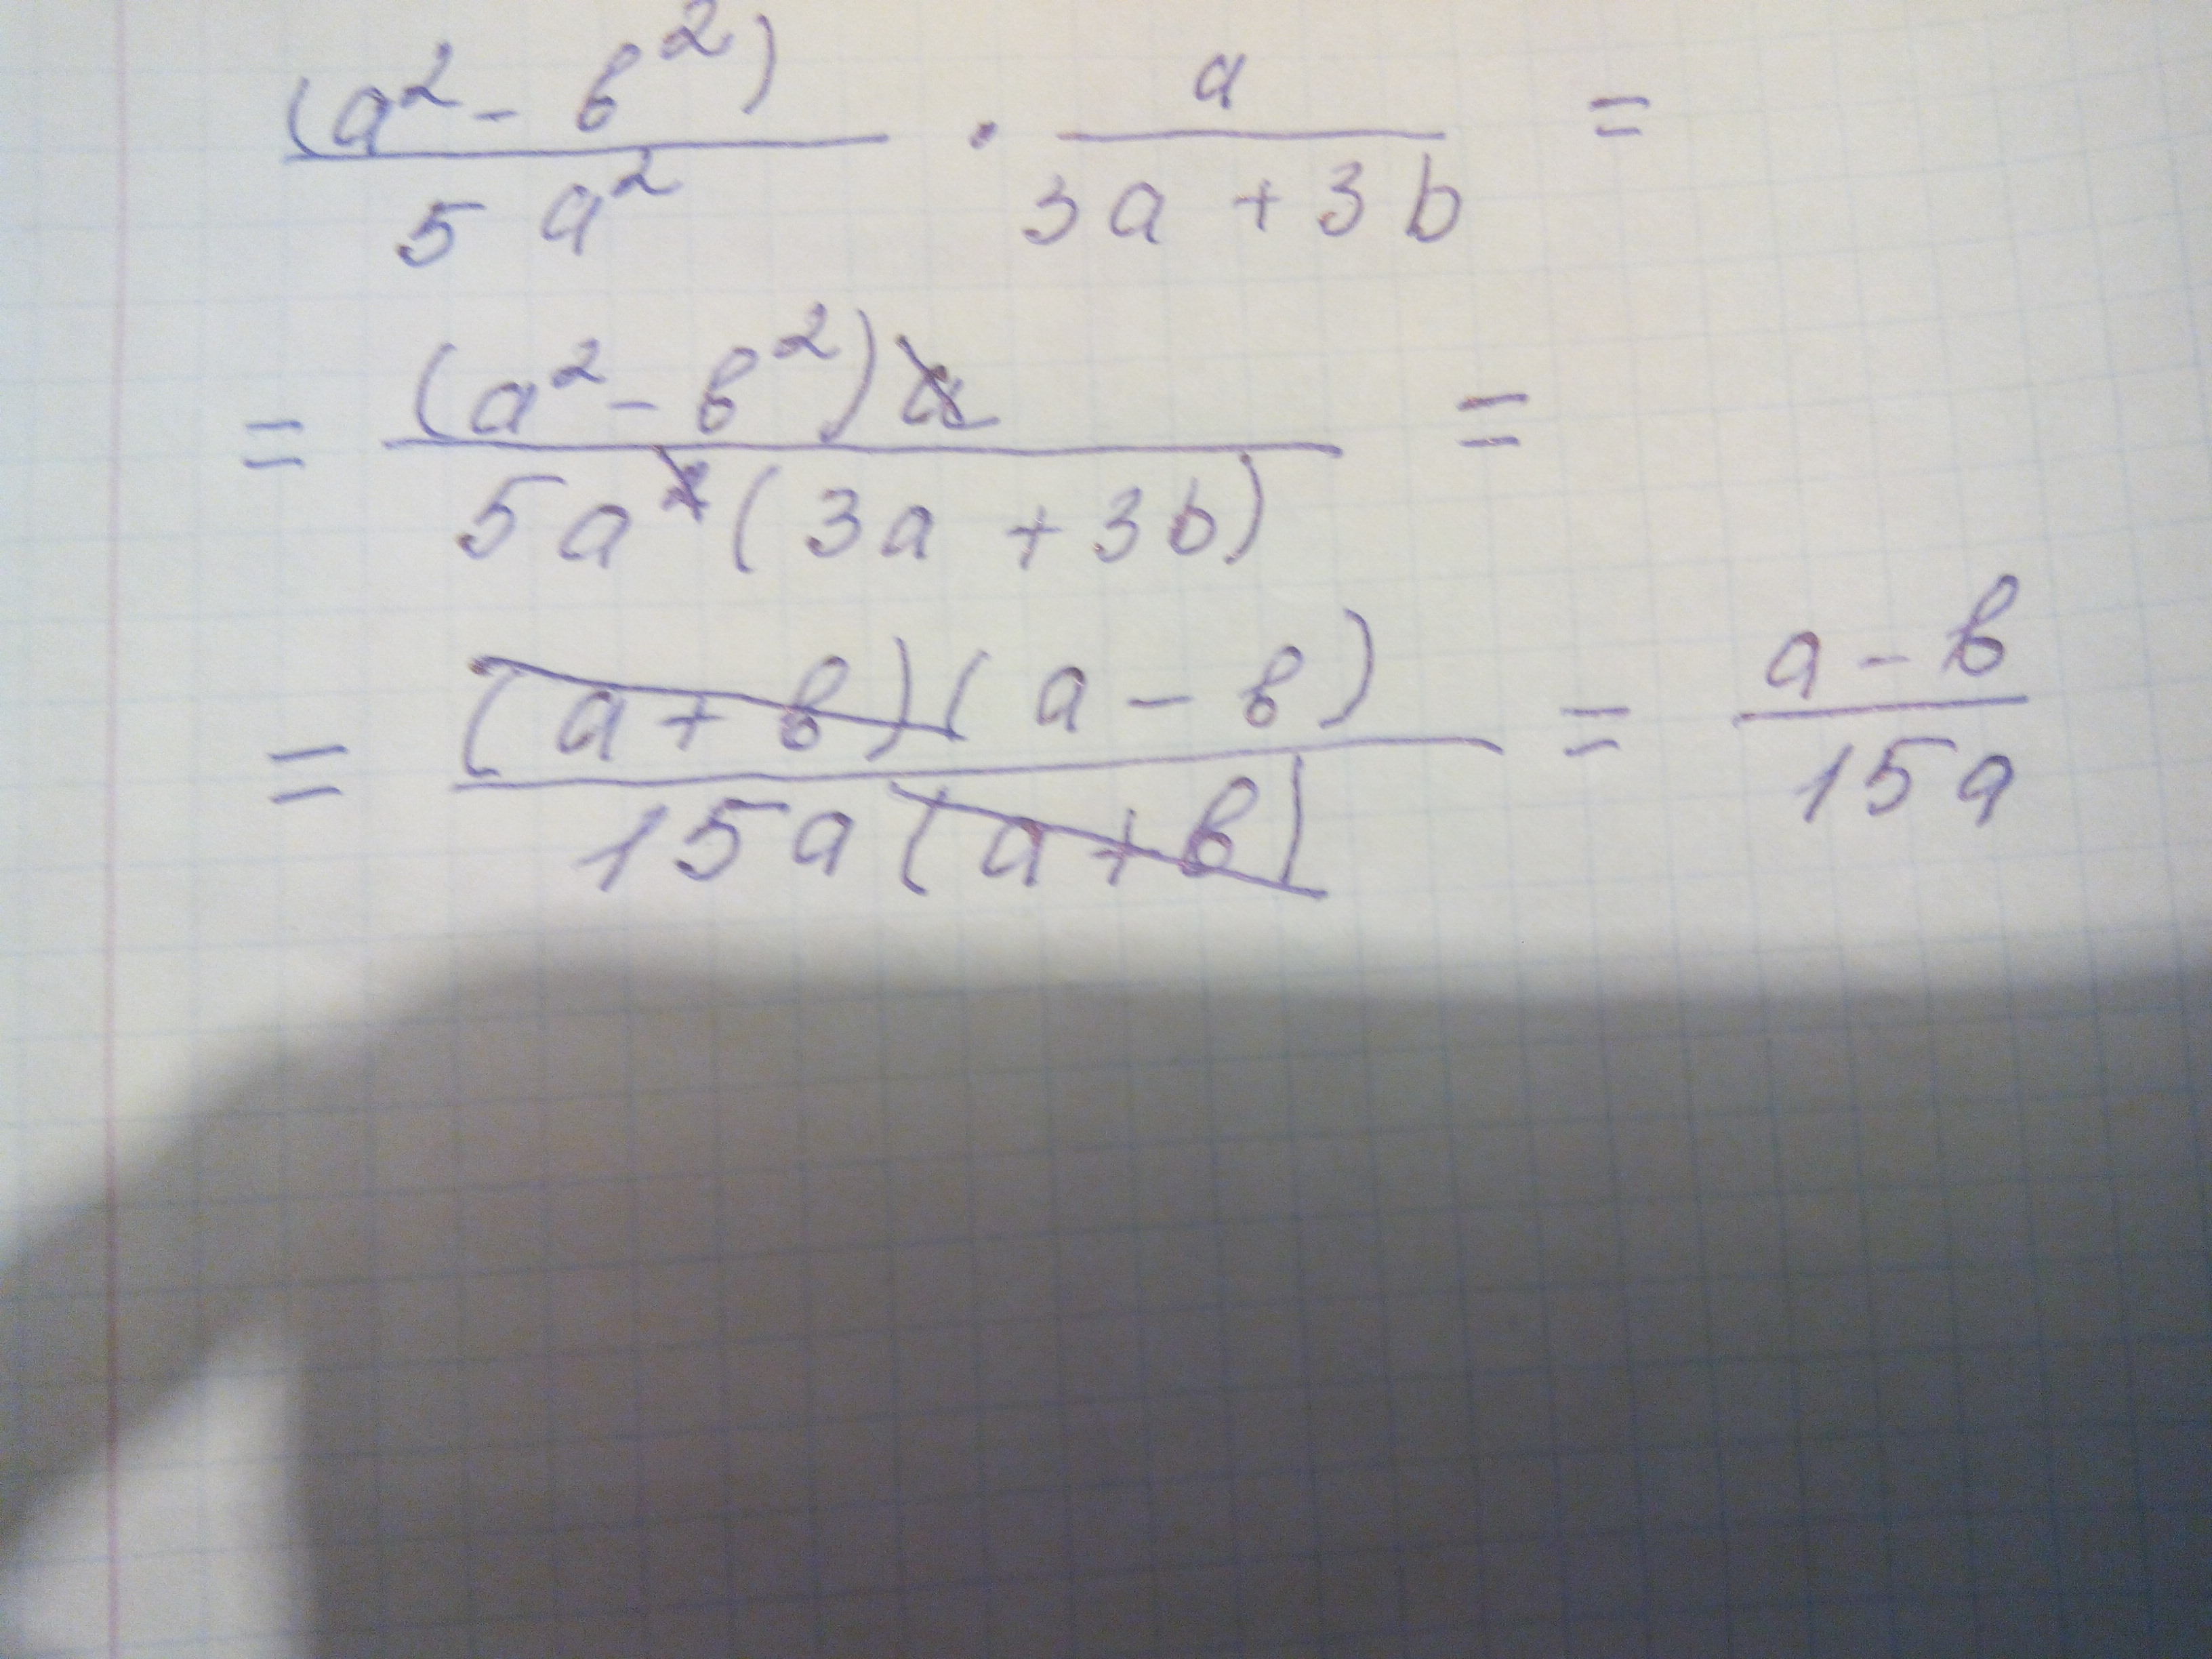 (a² - b²) / 5a² · a / 3a + 3b =
= (a² - b²)a / 5a²(3a + 3b) =
= (a + b)(a - b) / 15a(a + b) = a - b / 15a